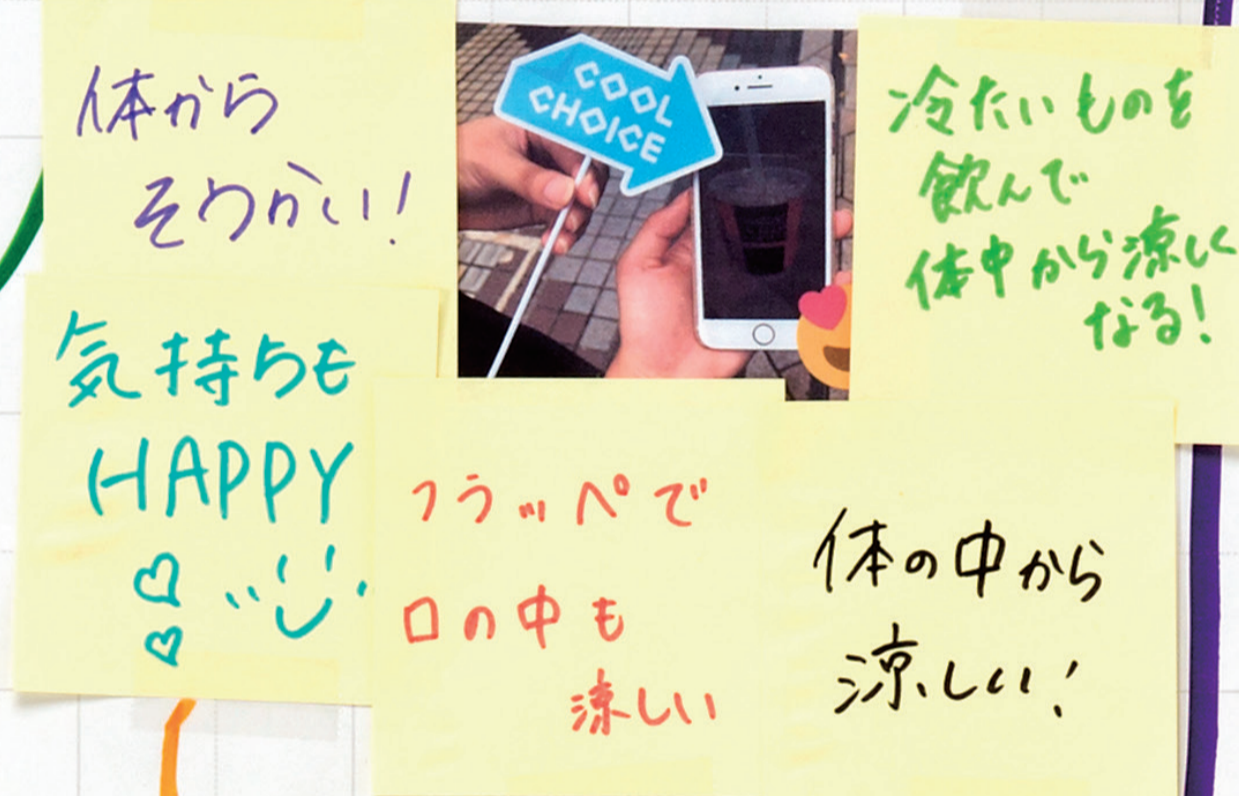 体から
そうかい!
COOL
CHOICE
冷たいものを
飲んで
体中から涼しく
なる!
気持ちも
HAPPY
フラッペで
口の中も
涼しい
体の中から
涼しい!